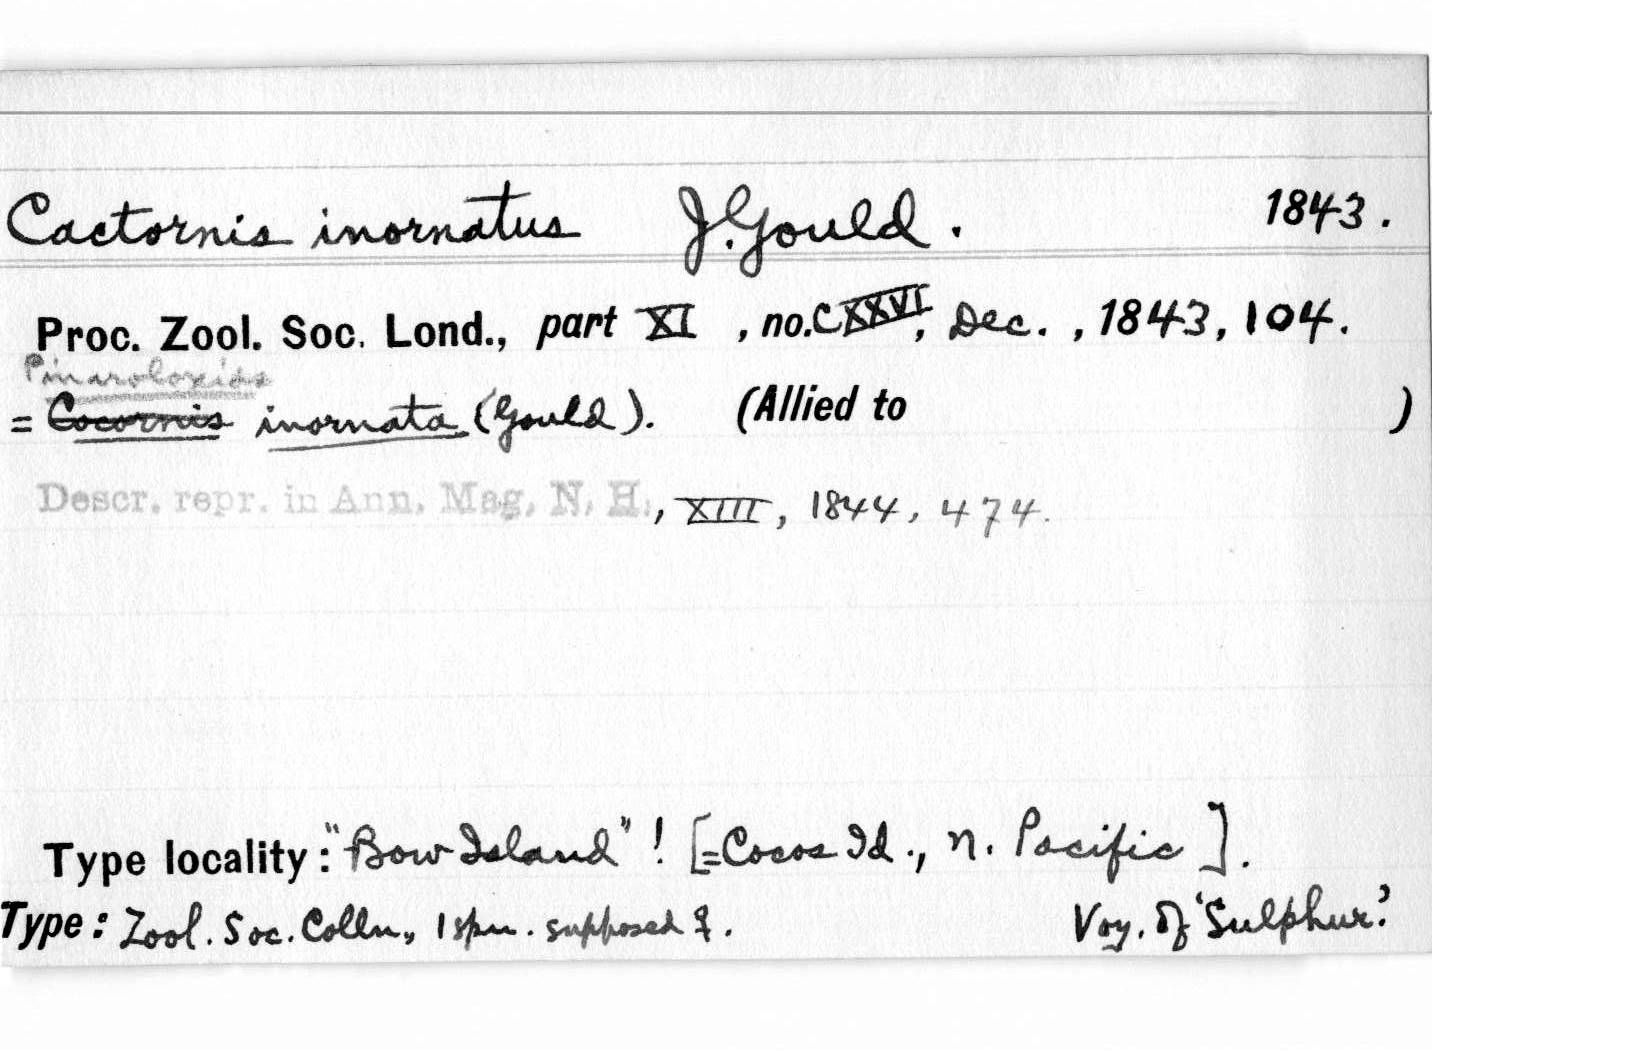 Cactornis inornatus J. Gould. 1843.
Proc. Zool. Soc. Lond., part XI, no. CXXVI, Dec., 1843, 104.
Pinaroloxias
= Cocornis inornata (Gould). (Allied to )
Descr. repr. in Ann. Mag. N. H., XIII, 1844, 474.
Type locality: "Bow Island"! [=Cocos Id., N. Pacific].
Type: Zool. Soc. Colln., 1 spn. supposed ♀. Voy. of 'Sulphur.'